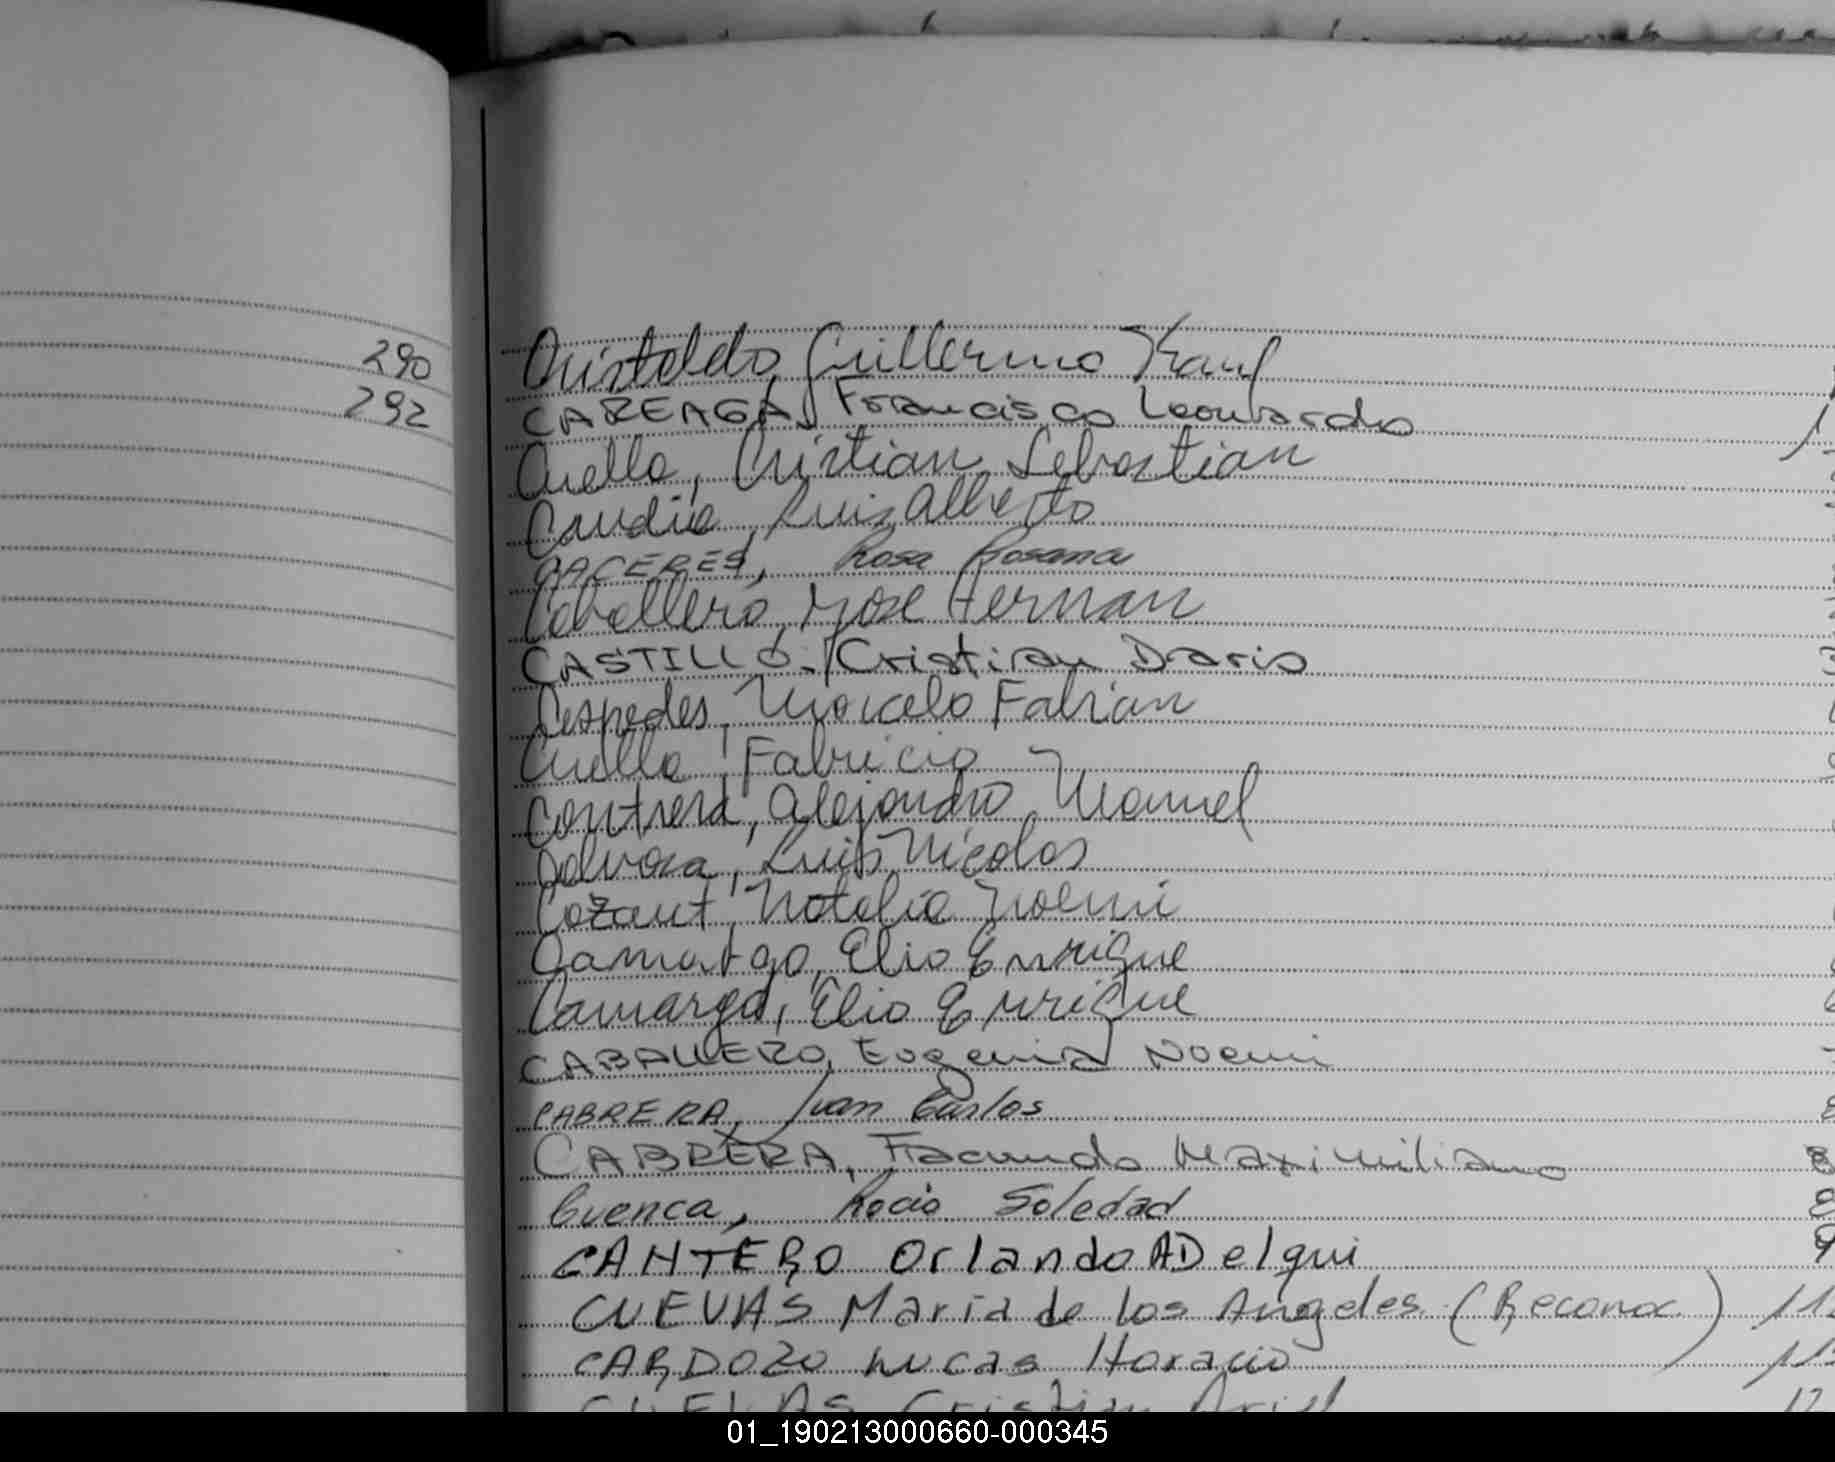 290
292
Cristaldo, Guillermo Raul
CAREAGA, Francisco Leonardo
Cuello, Cristian Sebastian
Caudie, Luis Alberto
CACERES, Rosa Rosana
Caballero, Jose Hernan
CASTILLO, Cristian Dario
Cespedes, Marcelo Fabian
Cuello, Fabricio
Contrera, Alejandro Manuel
Luis Nicolas
Natalia Noemi
Camargo, Elio Enrique
Camargo, Elio Enrique
CABALLERO, Eugenia Noemi
CABRERA, Juan Carlos
CABRERA, Facundo Maximiliano
Cuenca, Rocio Soledad
CANTERO Orlando ADelqui
CUEVAS Maria de los Angeles (Reconoc.)
CARDOZO Lucas Horacio
CUEVAS Cristian Ariel
01_190213000660-000345